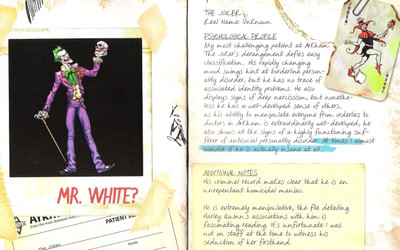 MR. WHITE?
THE JOKER
Real Name: Unknown
PSYCHOLOGICAL PROFILE
My most challenging patient at Arkham.
The Joker's derangement defies easy
classification. His rapidly changing
mood swings hint at borderline person-
ality disorder, but he has no trace of
associated identity problems. He also
displays signs of deep narcissism, but nonethe-
less he has a well-developed sense of others,
as his ability to manipulate everyone from orderlies to
doctors in Arkham is extraordinarily well-developed, he
also shows all the signs of a highly functioning suf-
ferer of antisocial personality disorder. At times I almost
wonder if he is actually insane at all.
ADDITIONAL NOTES
His criminal record makes clear that he is an
unrepentant homicidal maniac.
He is extremely manipulative, the file detailing
Harley Quinn's associations with him is
fascinating reading. It's unfortunate I was
not on staff at the time to witness his
seduction of her firsthand.